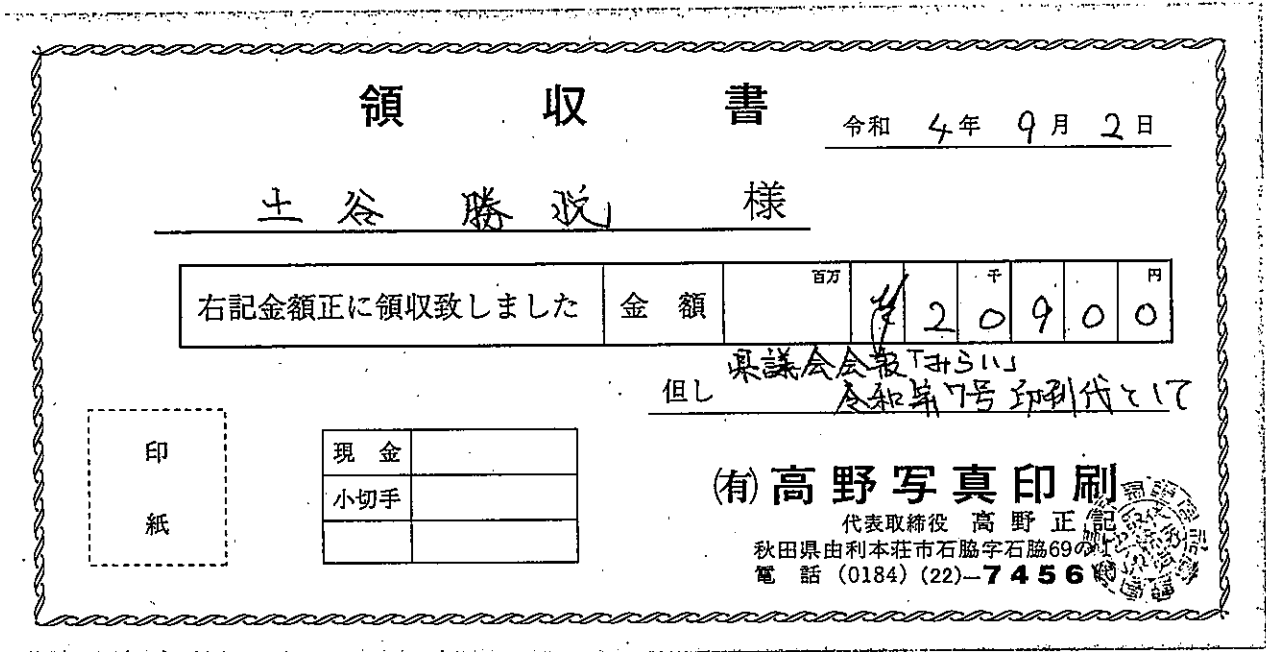 領収書
令和 4年 9月 2日
土谷 勝悦 様
右記金額正に領収致しました 金額 百万 千 円 ¥20900
県議会会報「みらい」
但し 令和第7号印刷代として
印紙
現金
小切手
(有)高野写真印刷
代表取締役 高野正記
秋田県由利本荘市石脇字石脇69の
電話 (0184) (22)–7456